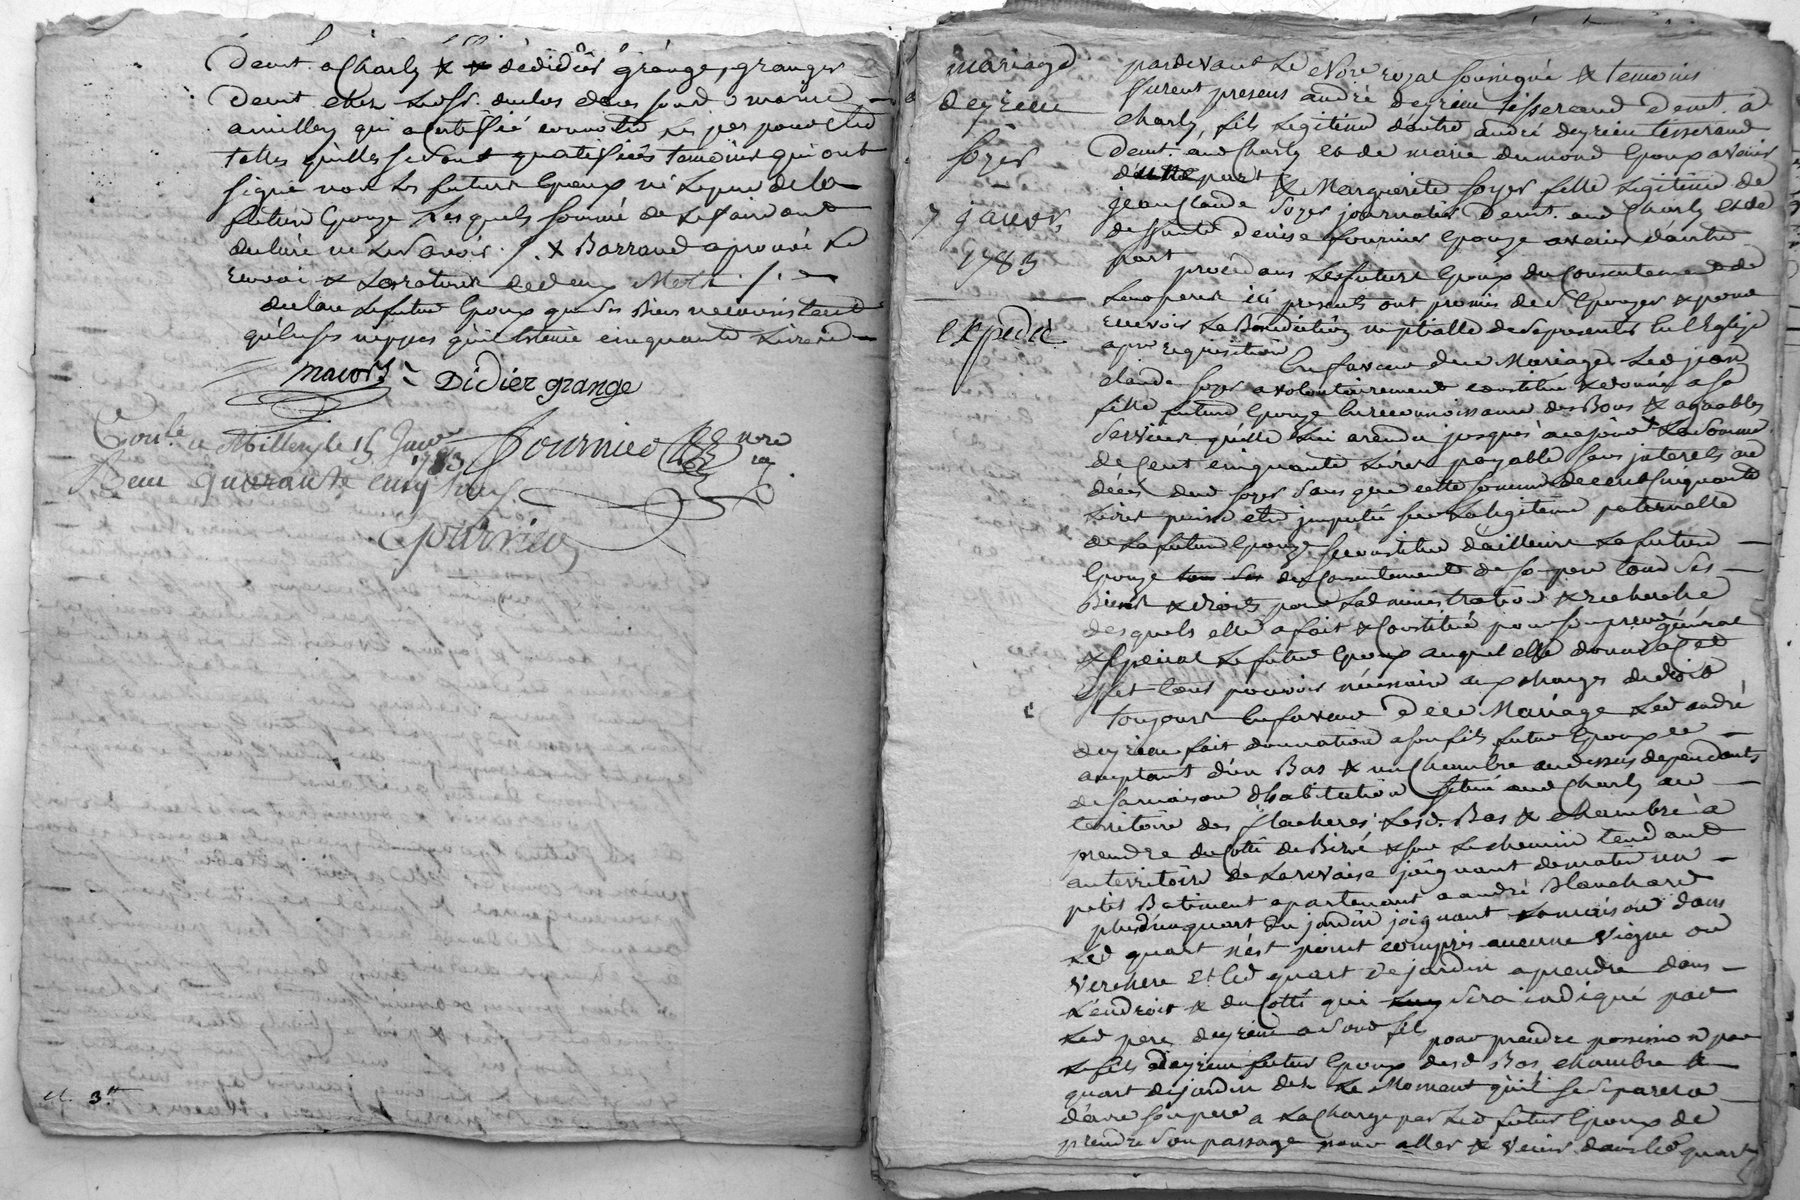 demt. a Charly & & de didier grange, granger
demt chez le sr. duclos
a milley qui a certifié connoitre les
telles qu'elles se sont qualifiées temoins qui ont
signé non les futurs Epoux ni le pere de la
future Epouze lesquels sommé de le faire ont
declaré ne le savoir ./. & Barraud aprouvé le
renvoi & la rature de deux Mots ./.
declare le futur Epoux que ses Biens ne consistent
qu'en ses nippes qu'il Estime cinquante Livres
Didier grange
Conlé a Millery le 15 Janv
1783
Fournier nore
roy.
Reçu quarante cinq sous
Fournier
ct. 3tt
mariage
deyrieu
soyer
7 janvr
1783
Expedié
pardevant le Nore royal soussigné & temoins
furent presens andré deyrieu tisserand demt. à
charly, fils legitime d'autre andré deyrieu tisserand
demt. aud Charly et de marie dumond Epoux a venir
d'une part & Marguerite soyer fille legitime de
jean Claude soyer journalier demt. aud Charly et de
deffunte denise fournier Epouze avenir d'autre
part procedans les futurs Epoux du Consentement de
leurs peres ici presents ont promis de s'Epouzer & pour
recevoir la Benediction nuptialle de se presenter En l'Eglise
a pre requisition En faveur du Mariage led jean
claude soyer a volontairement constitué & donné a sa
fille future Epouze En reconnoissance des Bons & agreables
services qu'elle lui a rendu jusques a ce jour la somme
de Cent cinquante Livres payable sans interets au
décès dud soyer sans que cette somme de cent Cinquante
Livres puisse etre imputée sur la legitime paternelle
de la future Epouze se constitue d'ailleurs la future
Epouze du Consentement de so pere tous ses
Biens & droits pour l'administration & recherche
desquels elle a fait & Constitué pour son preur général
& special le futur Epoux auquel elle donne a cet
effet tout pouvoir nécessaire aux charges de droit
toujours En faveur du Mariage led andré
deyrieu fait donnation a son fils futur Epoux ce
acceptant d'un Bas & un Chambre au dessus dependants
de sa maison d'habitation située aud Charly au
territoire des flacheres; lesd. Bas & chambre à
prendre du Cotté de Bize & sur le chemin tendant
au territoire de joignant de matin un
petit Batiment apartenant a andré Blanchard
plus d'un quart du jardin joignant la maison dans
led quart n'est point compris aucune vigne ou
verchere Et led quart de jardin a prendre dans
l'endroit & du Cotté qui sera indiqué par
led pere deyrieu a sond fils pour prendre possession par
le fils deyrieu futur Epoux desd Bas, chambre &
quart de jardin des le Moment qu'il se separera
d'avec son pere a la Charge par led futur Epoux de
prendre son passage pour aller & venir dans led quart